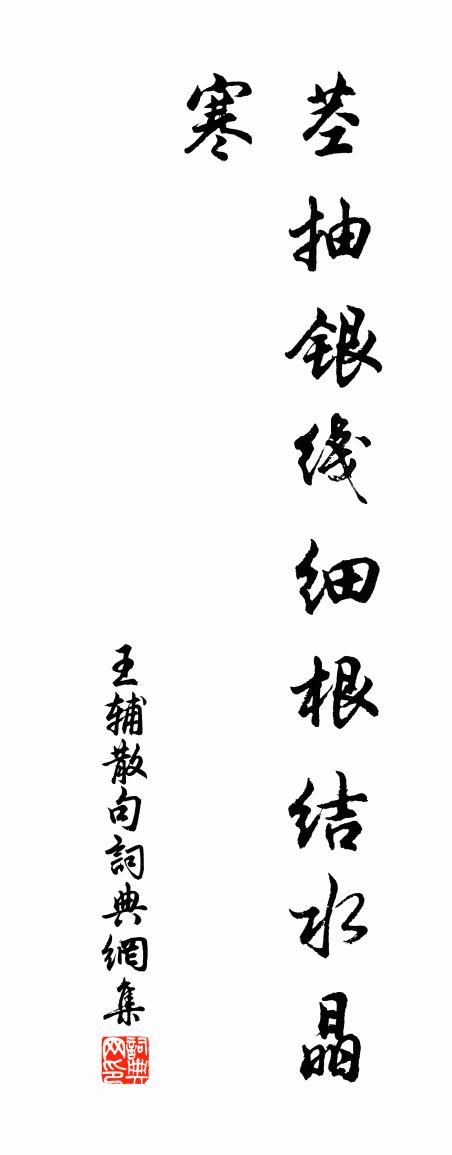 茎抽银线细根结水晶
寒
王辅散句詞典網集
詞典网印